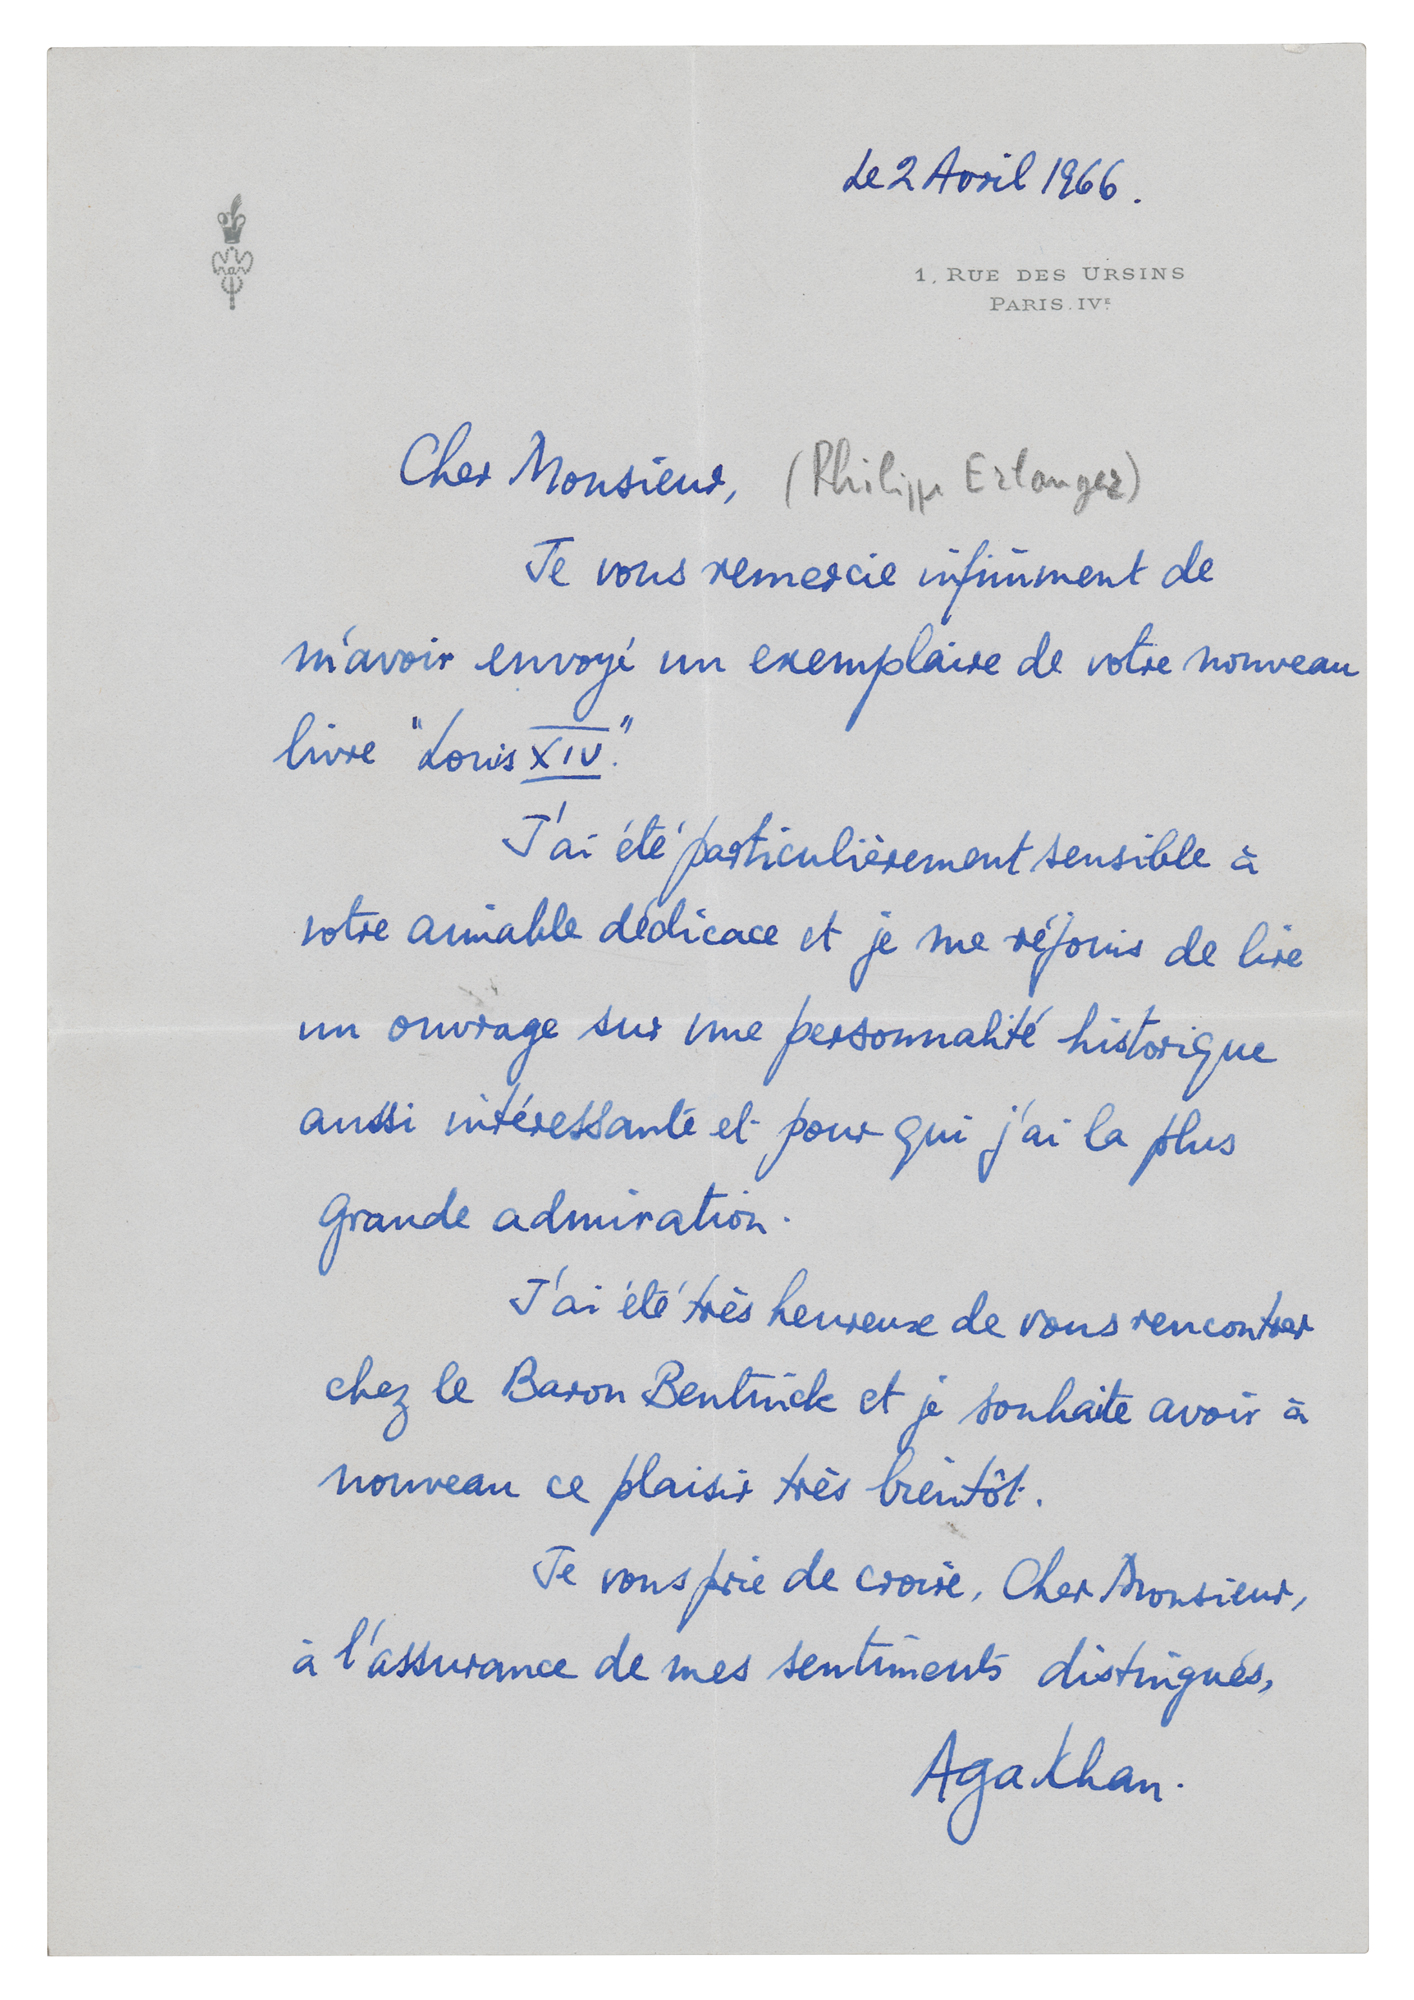 Le 2 Avril 1966.
1, RUE DES URSINS
PARIS. IVE.
Cher Monsieur, (Philippe Erlanger)
Je vous remercie infiniment de
m'avoir envoyé un exemplaire de votre nouveau
livre "Louis XIV."
J'ai été particulièrement sensible à
votre aimable dédicace et je me réjouis de lire
un ouvrage sur une personnalité historique
aussi intéressante et pour qui j'ai la plus
grande admiration.
J'ai été très heureuse de vous rencontrer
chez le Baron Bentinck et je souhaite avoir à
nouveau ce plaisir très bientôt.
Je vous prie de croire, Cher Monsieur,
à l'assurance de mes sentiments distingués,
Aga Khan.